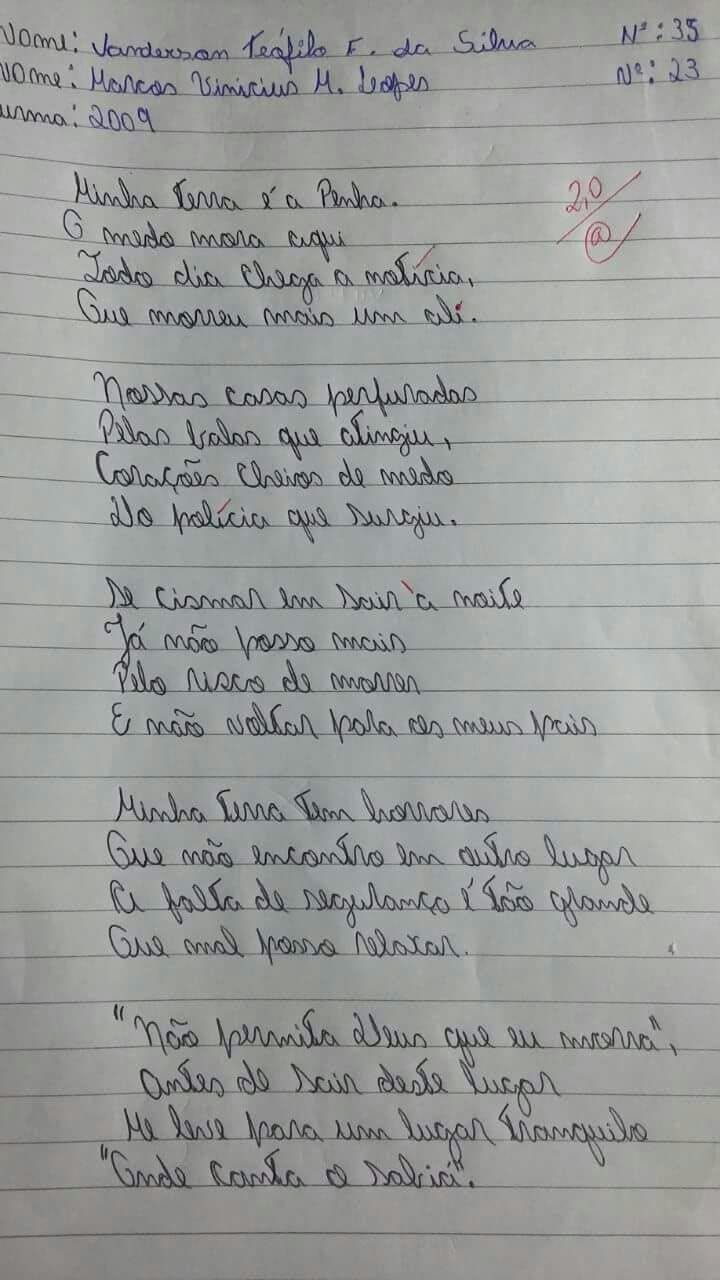 Nome: Vanderson Teófilo F. da Silva Nº: 35
Nome: Marcos Vinicius M. Leopes Nº: 23
urma: 2009
2,0
@
Minha terra é a Penha.
O medo mora aqui
Todo dia chega a notícia,
Que morreu mais um ali.
Nossas casas perfuradas
Pelas balas que atingiu,
Corações cheios de medo
Do polícia que surgiu.
Se cismar em sair à noite
Já não posso mais
Pelo risco de morrer
E não voltar para os meus pais
Minha terra tem horrores
Que não encontro em outro lugar
A falta de segurança é tão grande
Que mal posso relaxar.
"Não permita Deus que eu morra",
Antes de sair deste lugar
Me leve para um lugar tranquilo
"Onde canta o sabiá".